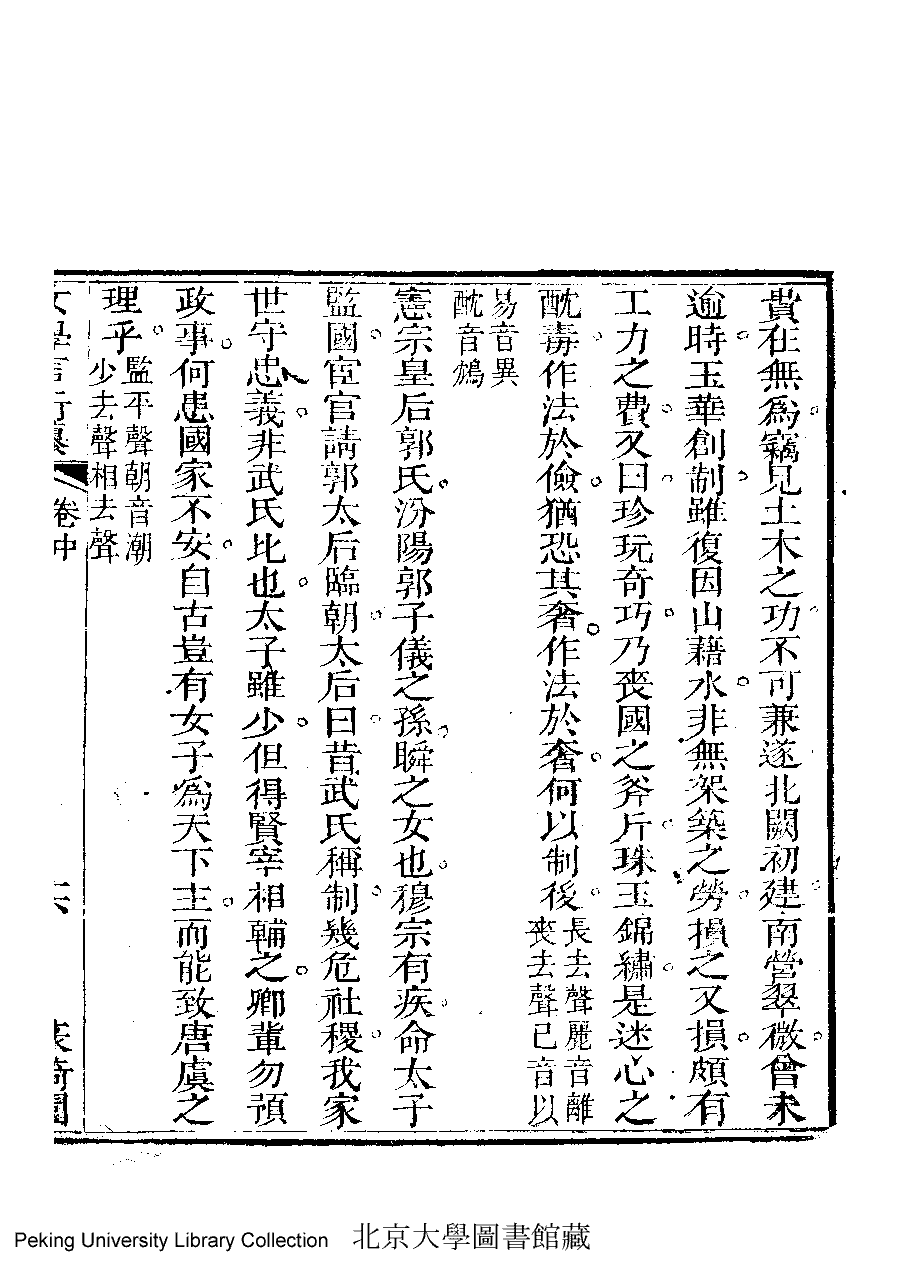 貴在無爲。竊見土木之功。不可兼遂北闕初建。南營翠微。曾未
逾時。玉華創制。雖復因山藉水。非無架築之勞。損之又損。頗有
工力之費。又曰。珍玩奇巧。乃喪國之斧斤。珠玉錦繡。是迷心之
酖毒。作法於儉。猶恐其奢。作法於奢。何以制後。
長去聲麗音離
喪去聲已音以
易音異
酖音鴆
憲宗皇后郭氏。汾陽郭子儀之孫。瞬之女也。穆宗有疾。命太子
監國。宦官請郭太后臨朝。太后曰。昔武氏稱制。幾危社稷。我家
世守忠義。非武氏比也。太子雖少。但得賢宰相輔之。卿輩勿預
政事。何患國家不安。自古豈有女子爲天下主。而能致唐虞之
理乎。
監平聲朝音潮
少去聲相去聲
卷中
Peking University Library Collection 北京大學圖書館藏